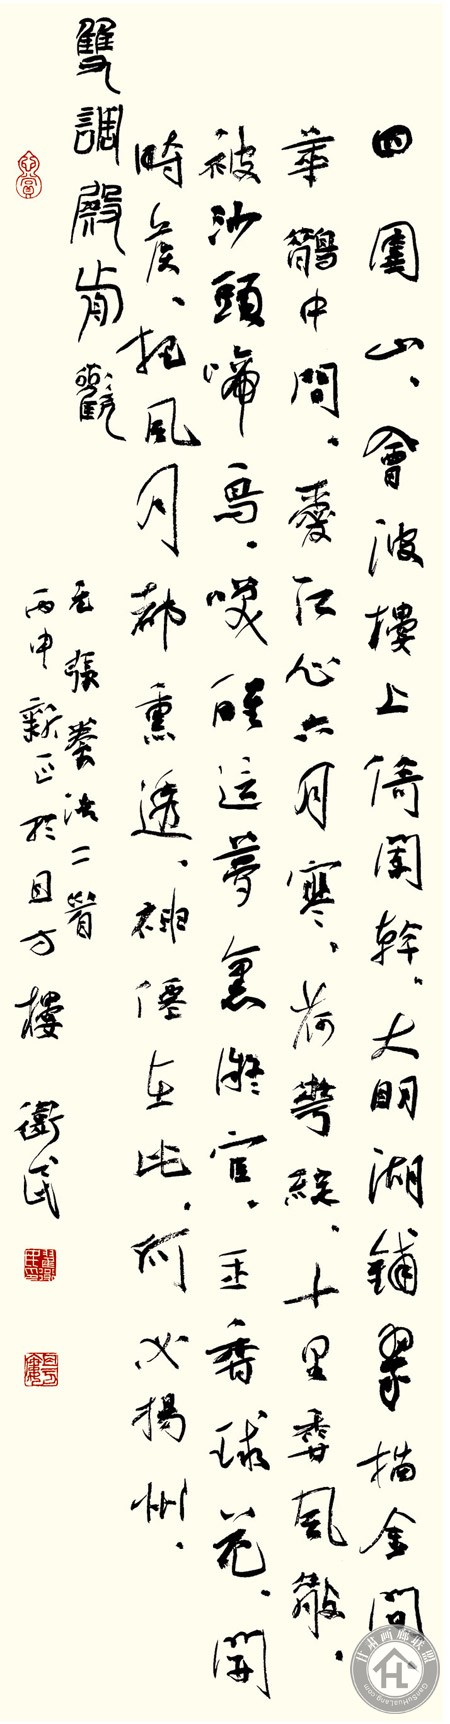 四圍山、會波樓上倚闌幹。大明湖鋪翠描金間
華鵲中間。愛江心六月寒、荷花綻、十里香風散。
被沙頭啼鳥。喚醒這夢裏微官。玉香球花、開
時候、把風月都熏透、神僊在此、何必揚州。
雙調殿前歡
元張養浩二首
丙申新正於目方樓 衛民
甘肃画廊联盟
GanSuHuaLang.com